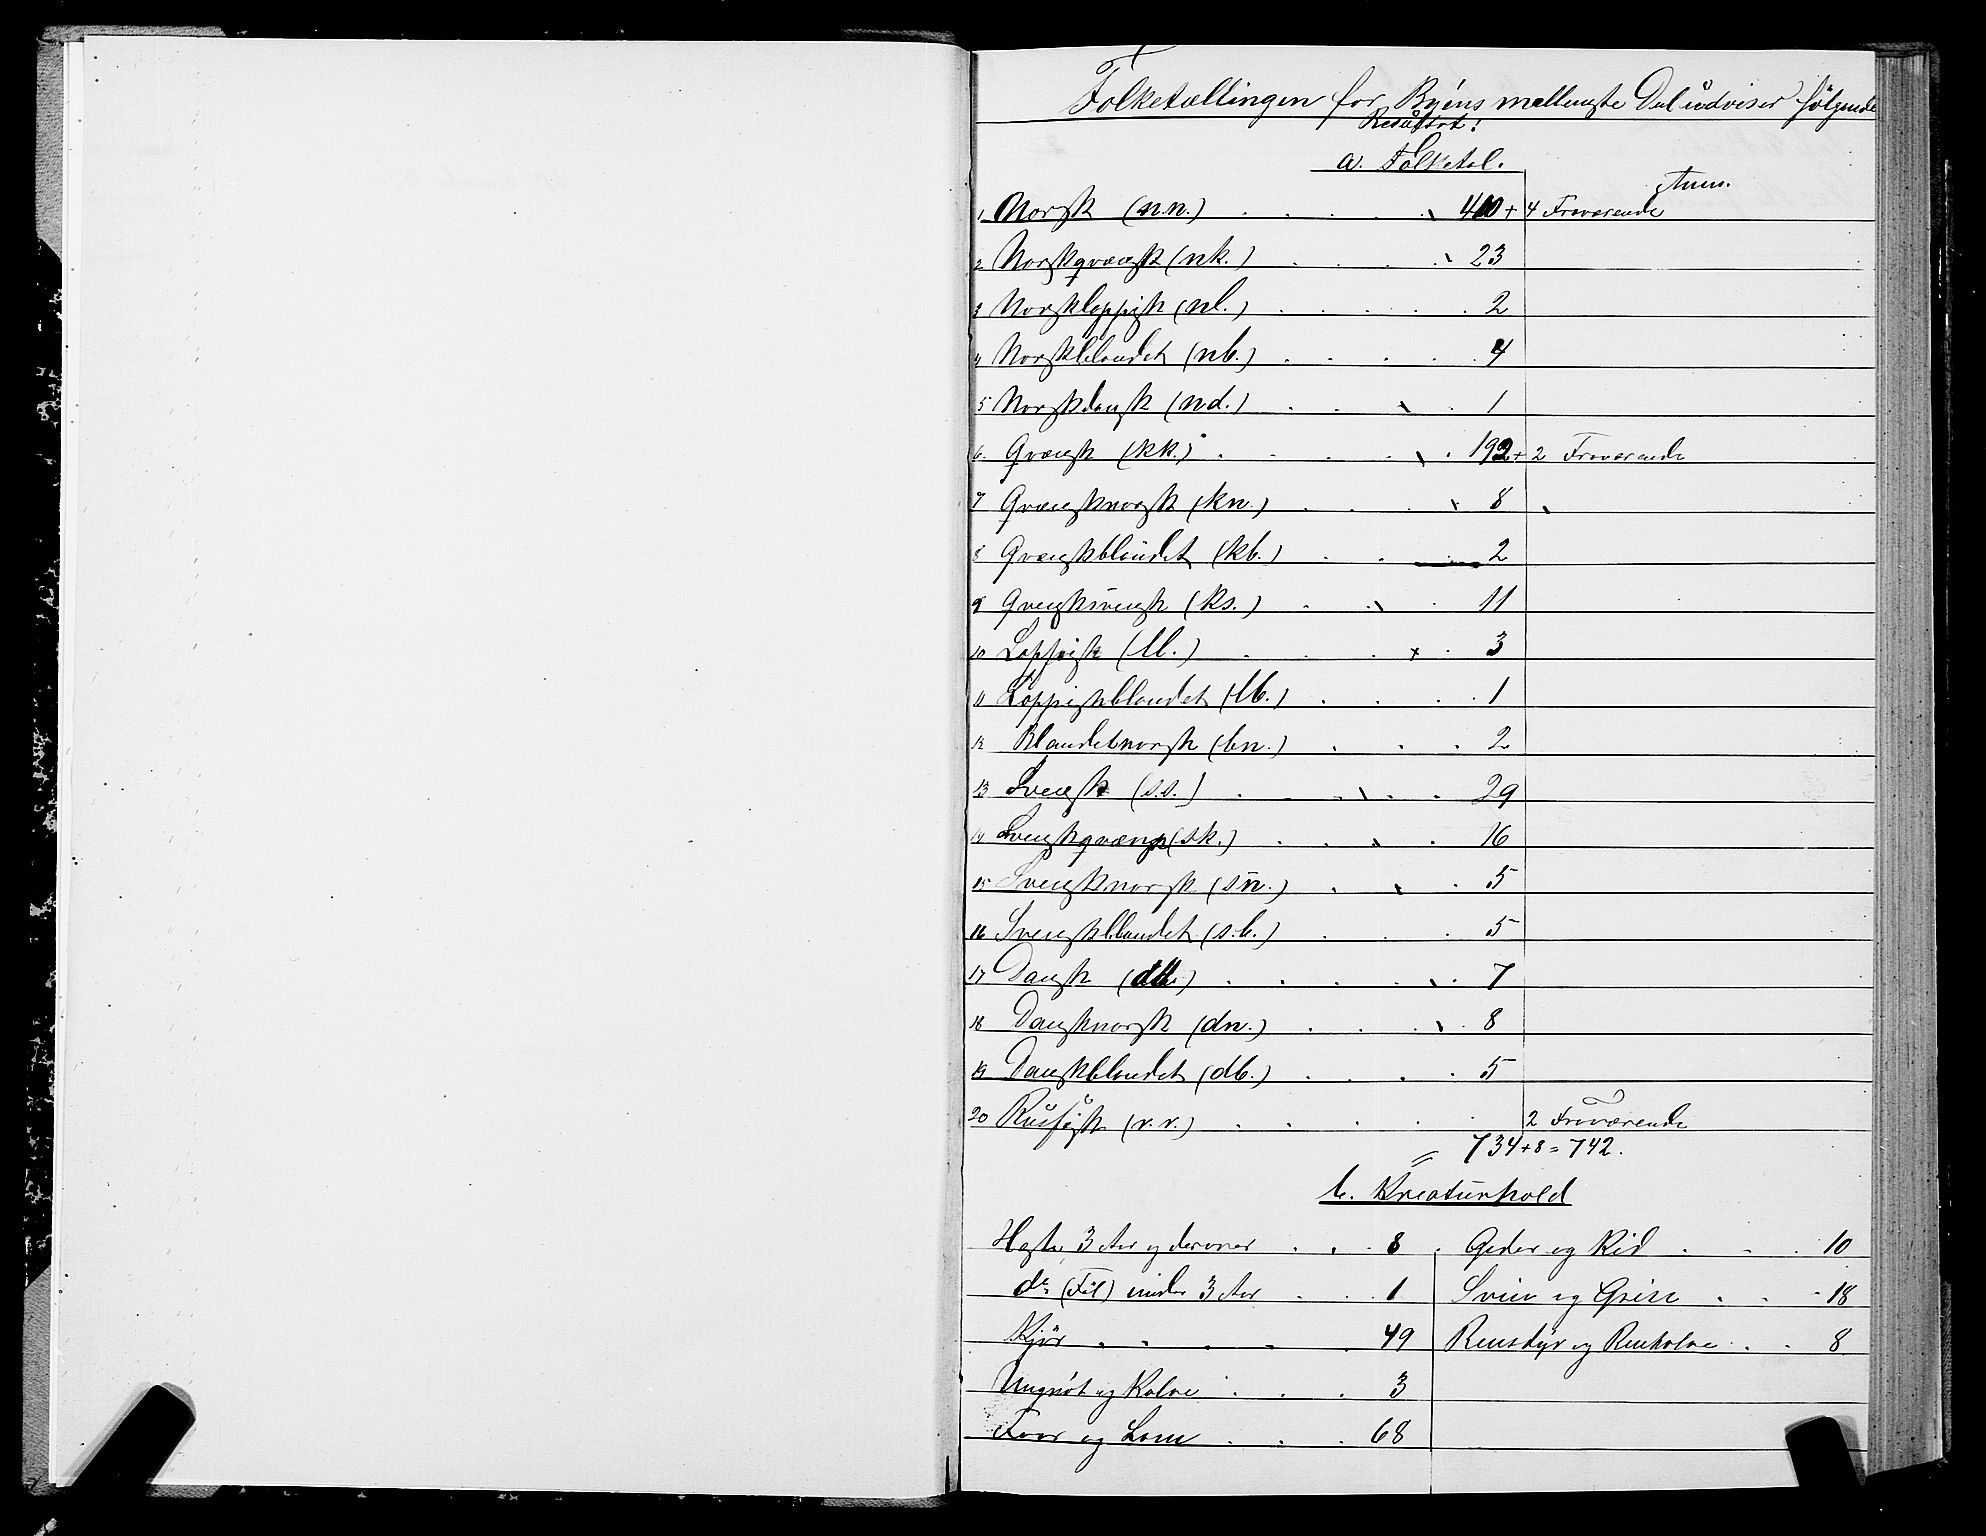 Folketællingen for Byens mellemste Del udviser følgende
Resultat:
a. Folketal.
Anm.
1 Norsk (n.n.) . . . . 410 + 4 Fraværende
2 Norskqvænsk (nk.) . . . 23
3 Norsklappisk (nl.) . . . . 2
4 Norskblandet (nb.) . . . . 4
5 Norskdansk (nd.) . . . 1
6. Qvænsk (kk.) . . . . 192 + 2 Fraværende
7 Qvænsknorsk (kn.) . . . 8
8 Qvænskblandet (kb.) . . 2
9 Qvensksvensk (ks.) . . . 11
10 Lappisk (ll.) . . . . 3
11 Lappiskblandet (lb.) . . . 1
12 Blandetnorsk (bn.) . . . 2
13 Svensk (s.s.) . . . . 29
14 Svenskqvænsk (sk.) . . . 16
15 Svensknorsk (sn.) . . 5
16 Svenskblandet (s.b.) . . . 5
17 Dansk (dd.) . . . . . 7
18 Dansknorsk (dn.) . . . 8
19 Danskblandet (db.) . . . . 5
20 Russisk (r.r.) . . . . . 2 Fraværende
= 734 + 8 = 742.
b. Kreaturhold
Heste 3 Aar og derover . . . 8 . Geder og Kid . . . 10
do (Føl) under 3 Aar . . . 1 Sviin og Grise . . . 18
Kjør . . . . . 49 Rensdyr og Renkalve . . . 8
Ungnøt og Kalve . . . 3
Faar og Lam . . . 68